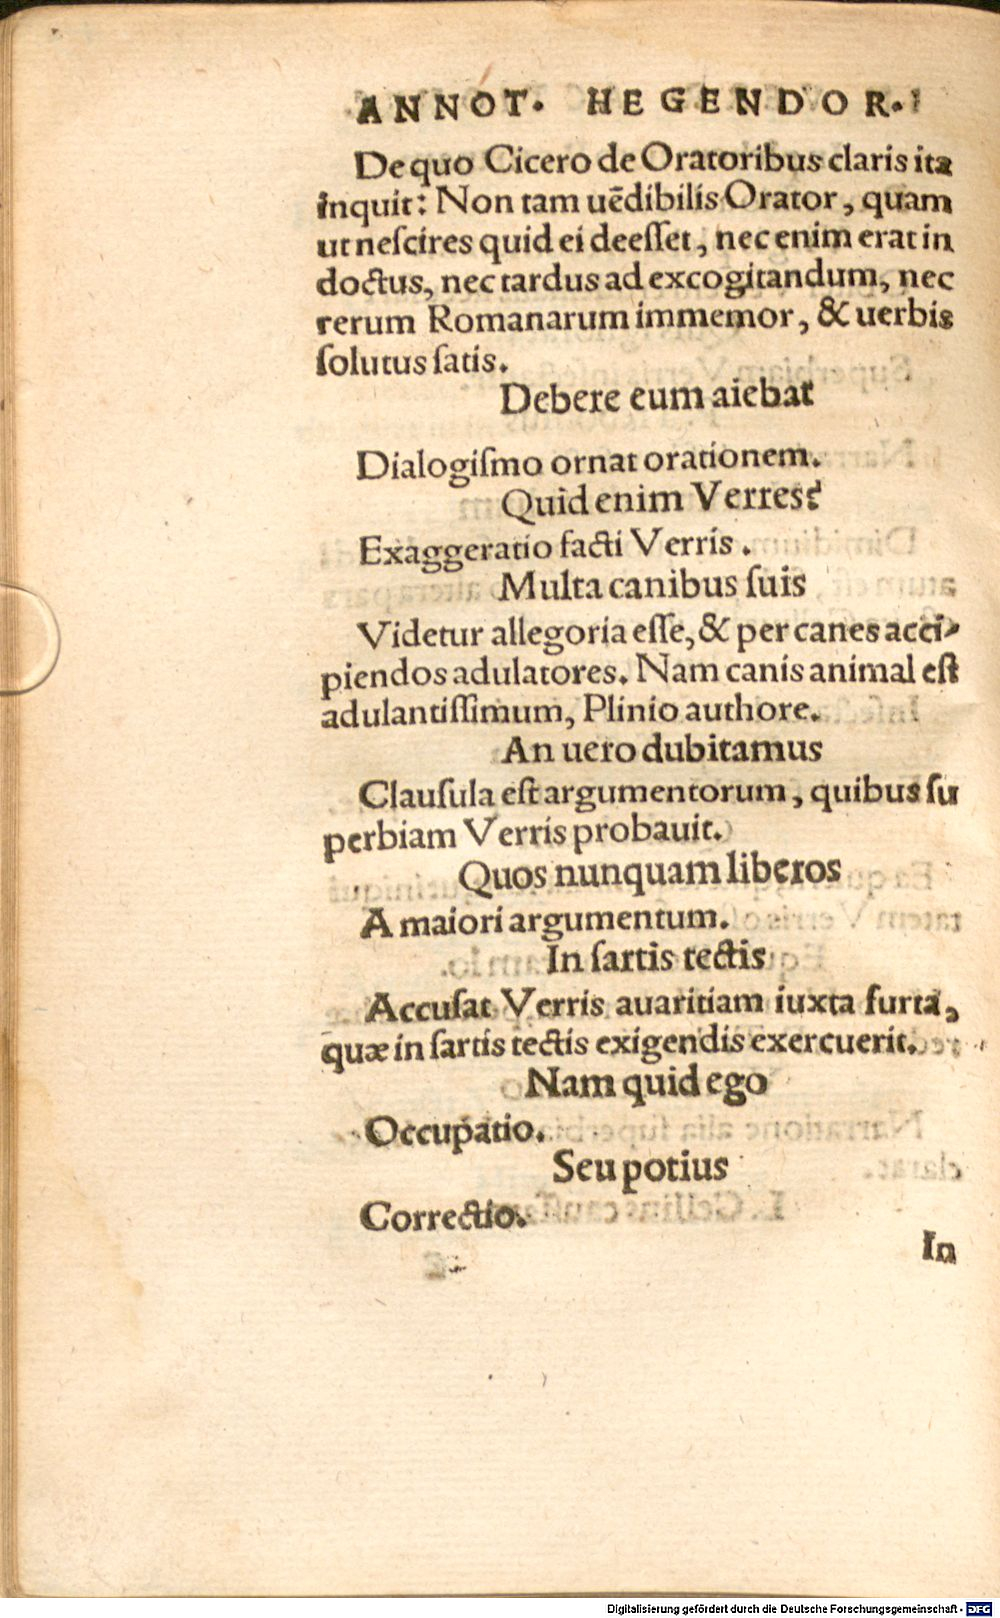 ANNOT. HEGENDOR.
De quo Cicero de Oratoribus claris ita
inquit: Non tam uēdibilis Orator, quam
ut neſcires quid ei deeſſet, nec enim erat in
doctus, nec tardus ad excogitandum, nec
rerum Romanarum immemor, & uerbis
ſolutus ſatis.
Debere eum aiebat
Dialogiſmo ornat orationem.
Quid enim Verres?
Exaggeratio facti Verris.
Multa canibus ſuis
Videtur allegoria eſſe, & per canes acci-
piendos adulatores. Nam canis animal eſt
adulantiſſimum, Plinio authore.
An uero dubitamus
Clauſula eſt argumentorum, quibus ſu
perbiam Verris probauit.
Quos nunquam liberos
A maiori argumentum.
In ſartis tectis
Accuſat Verris auaritiam iuxta furta,
quæ in ſartis tectis exigendis exercuerit.
Nam quid ego
Occupatio.
Seu potius
Correctio.
In
Digitalisierung gefördert durch die Deutsche Forschungsgemeinschaft - DFG